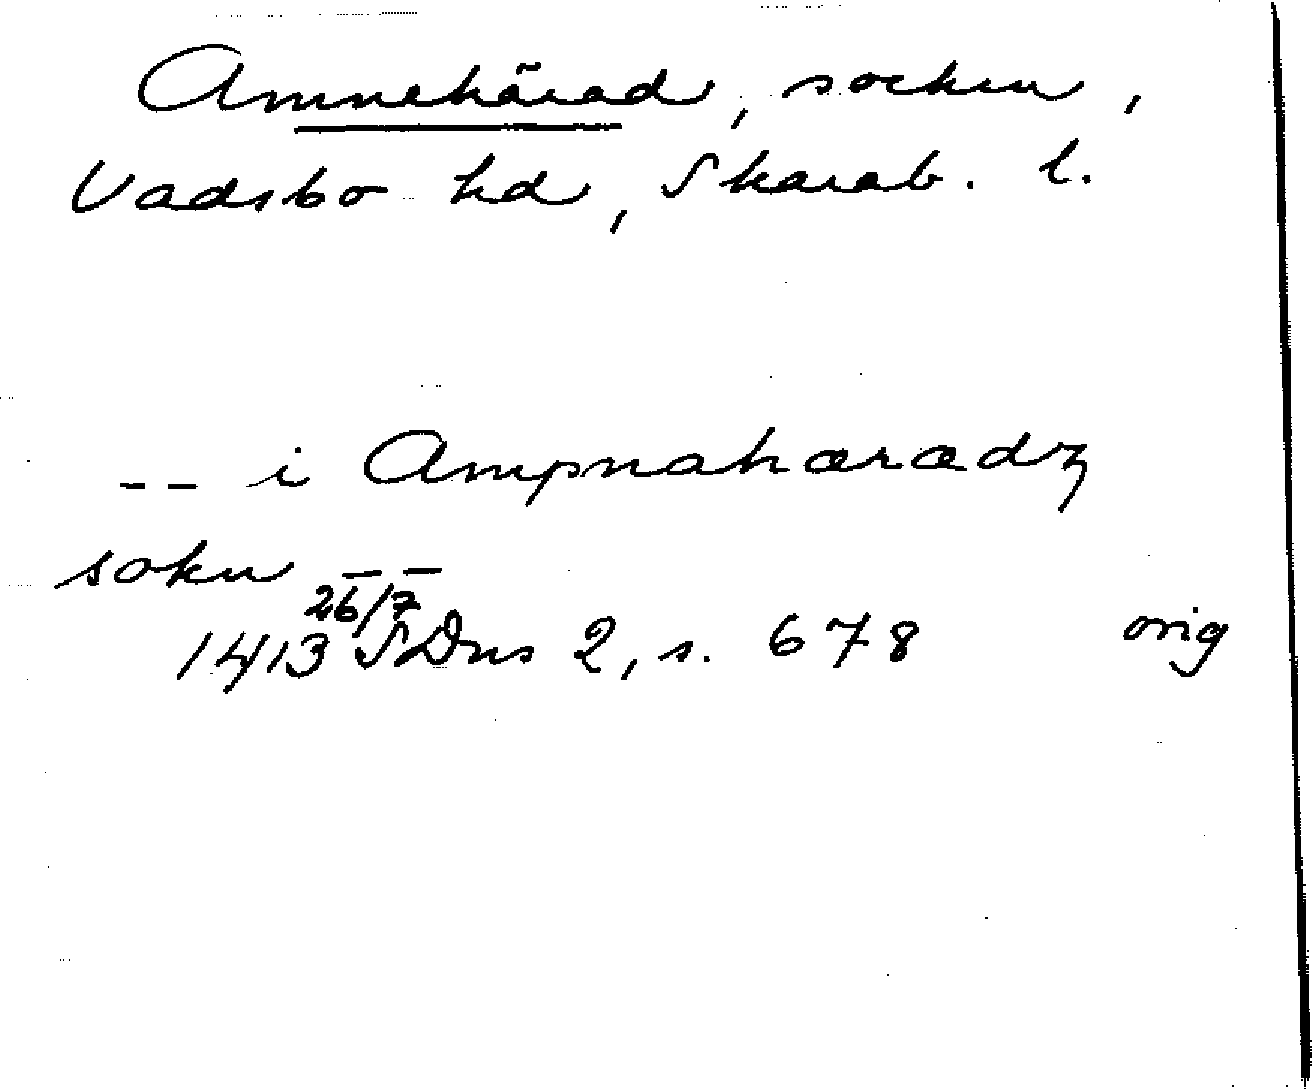 Amnehärad, socken,
Vadsbo hd, Skarab. l.
-- i Ampnahærædz
sokn --
1413 26/7 SDns 2, s. 678 orig